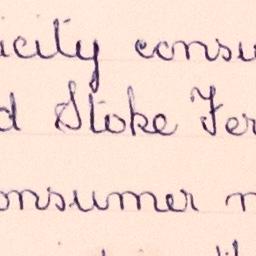 icity consu
d Stoke Fer
onsumer n